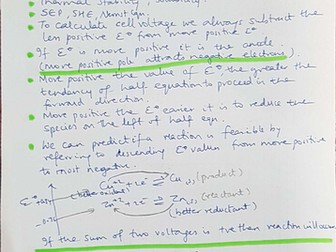 Thermal Stability
SEP, SHE,
To calculate cell voltage we always subtract the
less positive E° from more positive E°
If E° is more positive it is the
(more positive pole attracts negative electrons).
More positive the value of E° the greater the
tendency of half equation to proceed in the
forward direction.
More positive the E° easier it is to reduce the
species on the left of half eqn.
We can predict if a reaction is feasible by
referring to descending E° values from more positive
to most negative.
Cu+2 + 2e- ⇌ Cu(s) (product)
Zn+2 + 2e- ⇌ Zn(s) (reactant)
(better reductant)
If the sum of two voltages is +ve then reaction will